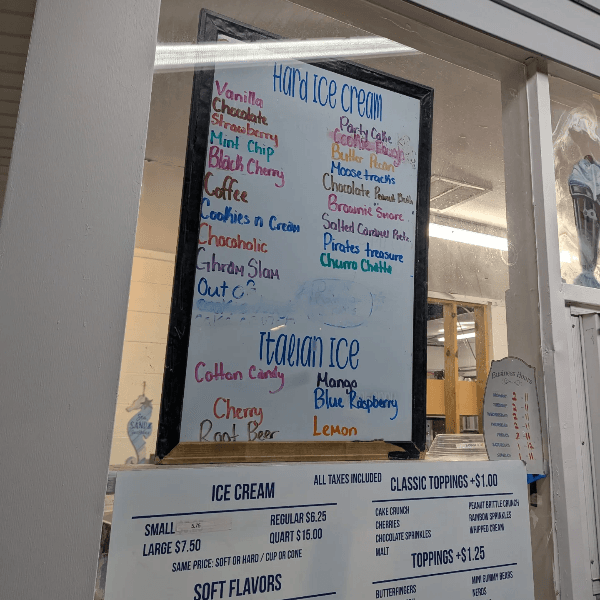 Hard Ice Cream
Vanilla
Chocolate
Strawberry
Mint Chip
Black Cherry
Coffee
Cookies n Cream
Chocoholic
Ghram Slam
Out of
Party Cake
Cookie Dough
Butter Pecan
Moosetracks
Chocolate Peanut
Brownie
Salted Caramel
Pirates treasure
Churro Chatta
Italian Ice
Cotton Candy
Cherry
Root Beer
Mango
Blue Raspberry
Lemon
ALL TAXES INCLUDED
ICE CREAM
SMALL
REGULAR $6.25
LARGE $7.50
QUART $15.00
SAME PRICE: SOFT OR HARD / CUP OR CONE
SOFT FLAVORS
CLASSIC TOPPINGS +$1.00
CAKE CRUNCH
CHERRIES
CHOCOLATE SPRINKLES
MALT
PEANUT BRITTLE CRUNCH
RAINBOW SPRINKLES
WHIPPED CREAM
TOPPINGS +$1.25
BUTTERFINGERS
MINI GUMMY BEARS
NERDS